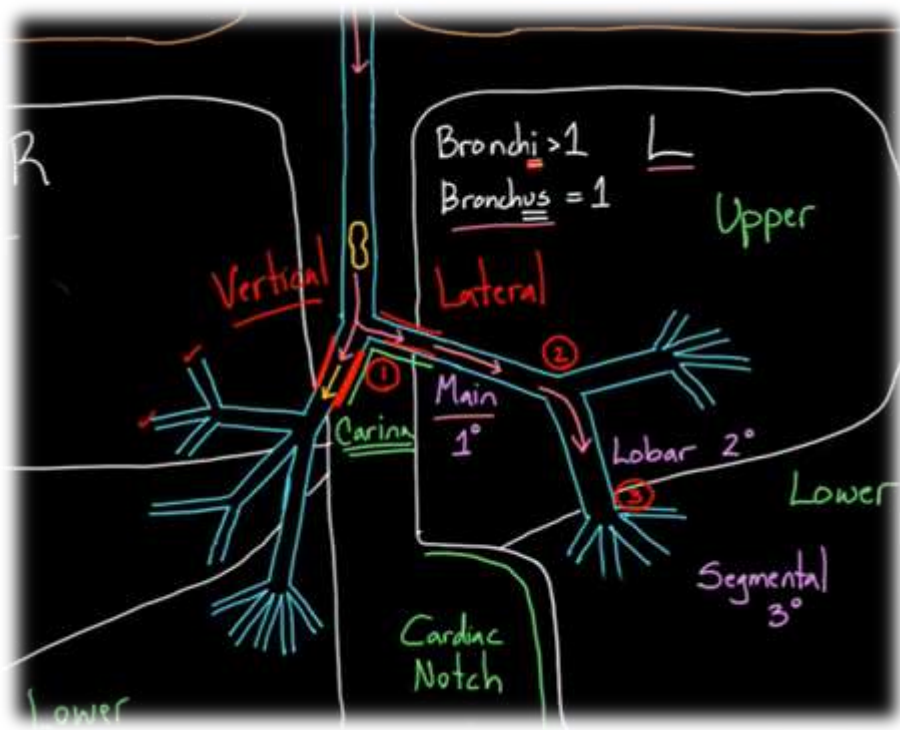 R
Bronchi > 1
L
Bronchus = 1
Upper
Vertical
Lateral
②
①
Main
1°
Carina
Lobar 2°
③
Lower
Segmental
3°
Cardiac
Notch
Lower